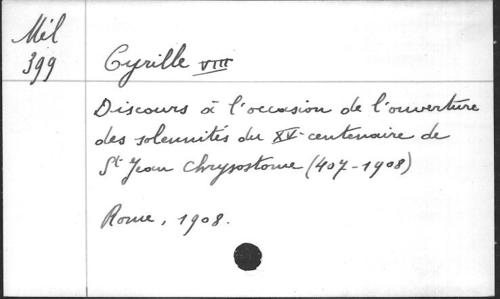 Mél
399
Cyrille VIII
Discours à l'occasion de l'ouverture
des solennités du XVe centenaire de
St Jean Chrysostome (407-1908)
Rome, 1908.